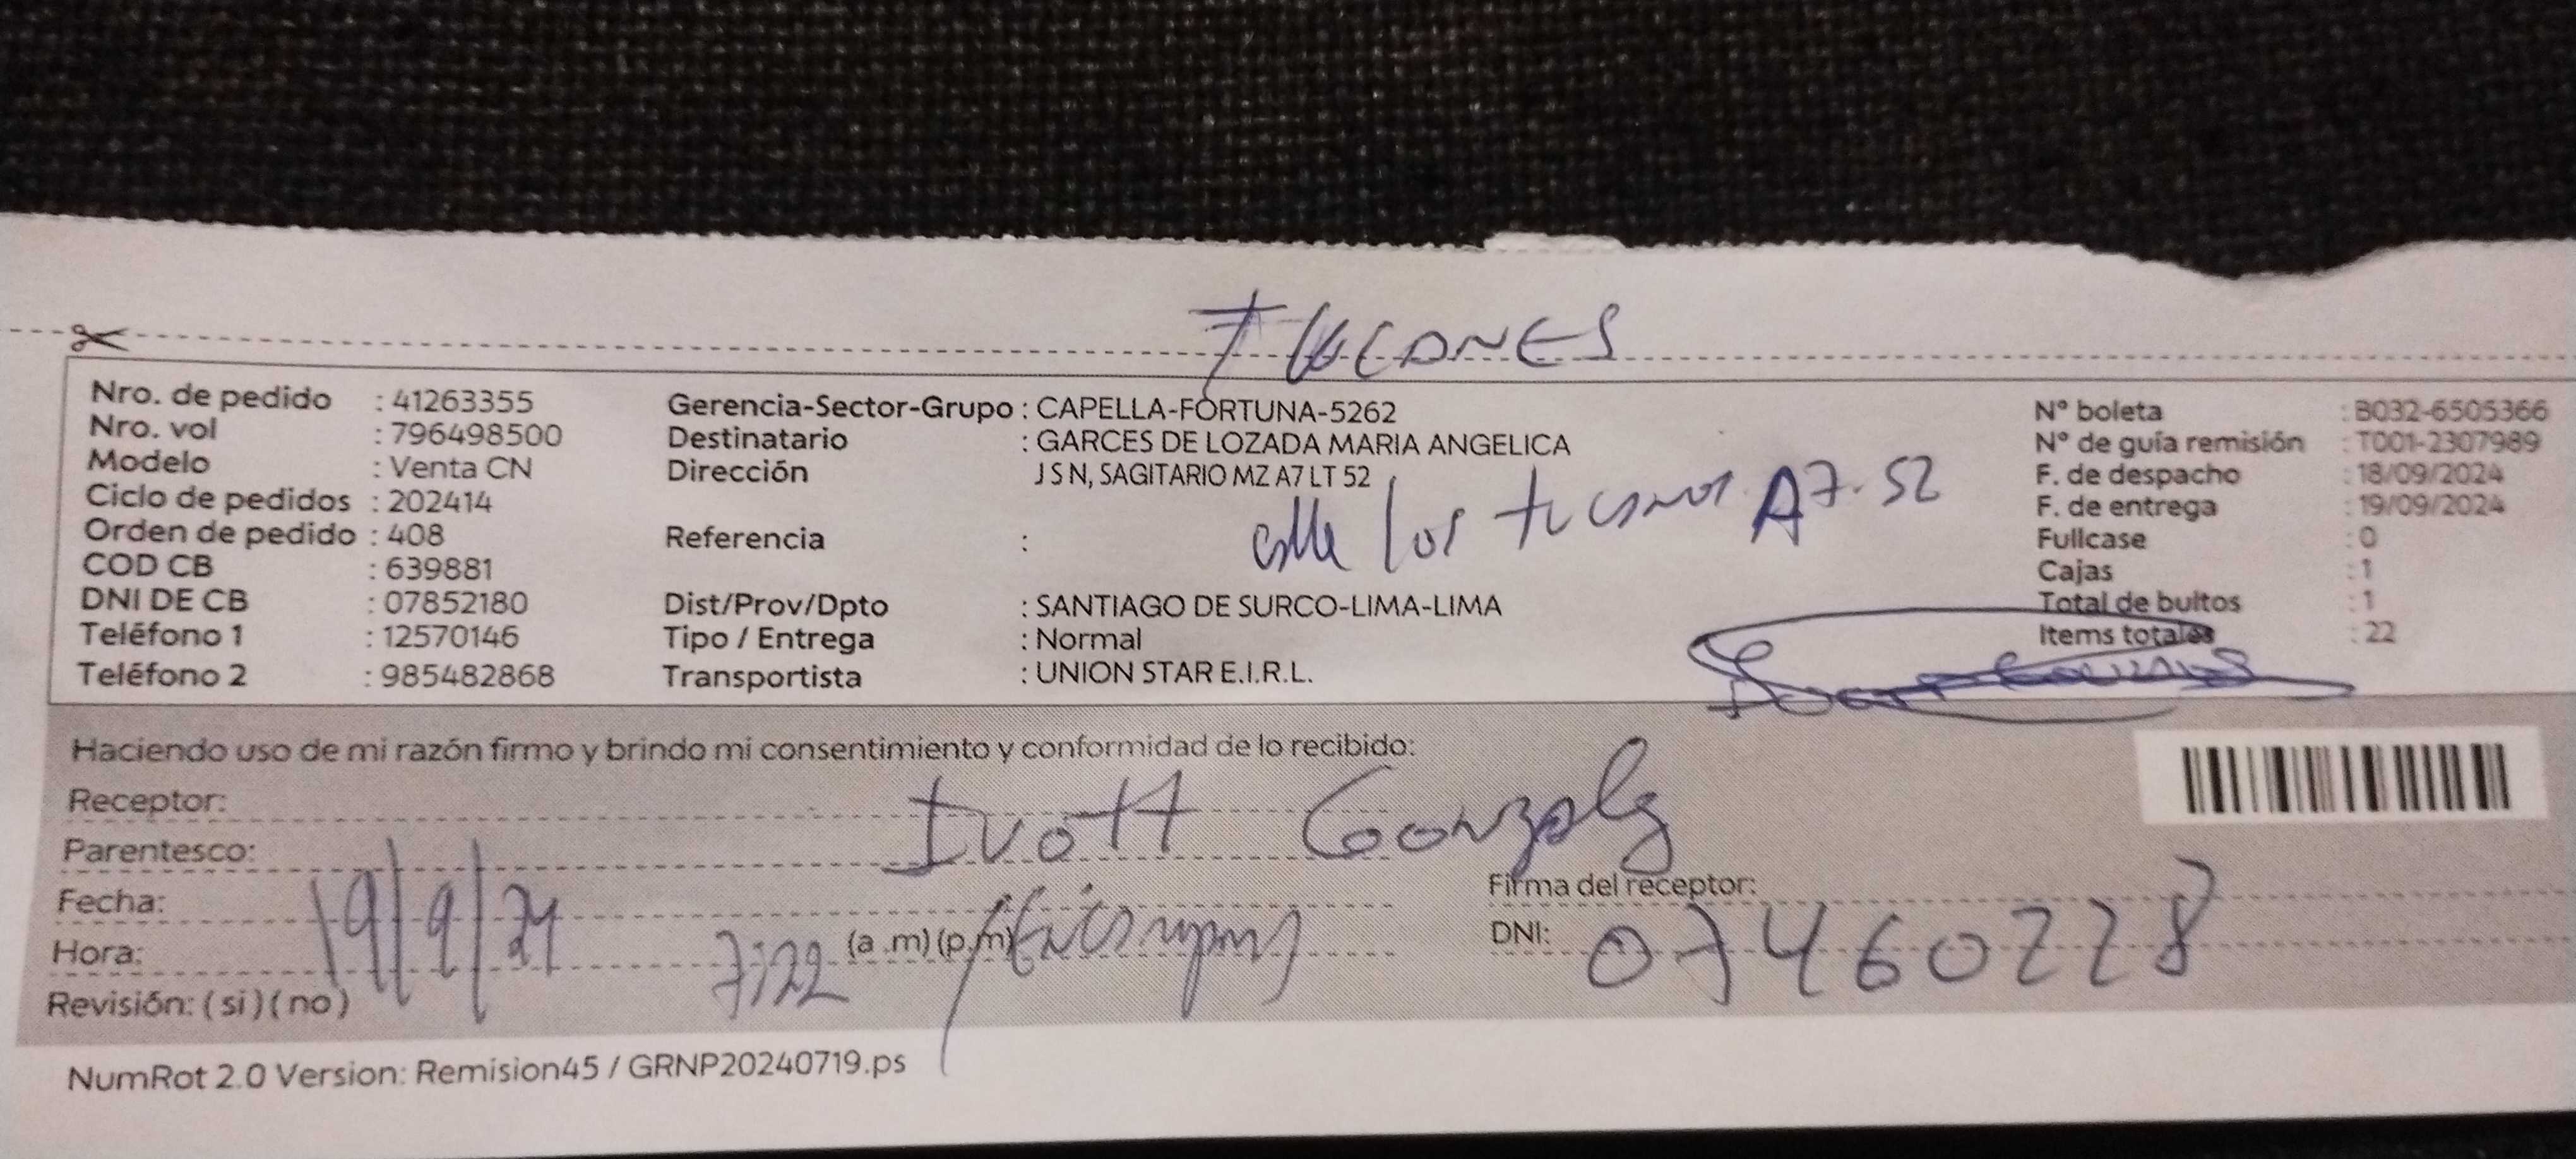 TUCANES
Nro. de pedido : 41263355
Nro. vol : 796498500
Modelo : Venta CN
Ciclo de pedidos : 202414
Orden de pedido : 408
COD CB : 639881
DNI DE CB : 07852180
Teléfono 1 : 12570146
Teléfono 2 : 985482868
Gerencia-Sector-Grupo : CAPELLA-FORTUNA-5262
Destinatario : GARCES DE LOZADA MARIA ANGELICA
Dirección J S N, SAGITARIO MZ A7 LT 52
calle los tucanes A7-52
Referencia :
Dist/Prov/Dpto : SANTIAGO DE SURCO-LIMA-LIMA
Tipo / Entrega : Normal
Transportista : UNION STAR E.I.R.L.
N° boleta : B032-6505366
N° de guía remisión : T001-2307989
F. de despacho : 18/09/2024
F. de entrega : 19/09/2024
Fullcase : 0
Cajas : 1
Total de bultos : 1
Items totales : 22
Haciendo uso de mi razón firmo y brindo mi consentimiento y conformidad de lo recibido:
Receptor:
Ivott Gonzales
Parentesco:
Fecha: 19/9/24
Hora: 7:22 (a .m) (p.m)
Revisión: ( si ) ( no )
Firma del receptor:
DNI: 07460228
NumRot 2.0 Version: Remision45 / GRNP20240719.ps